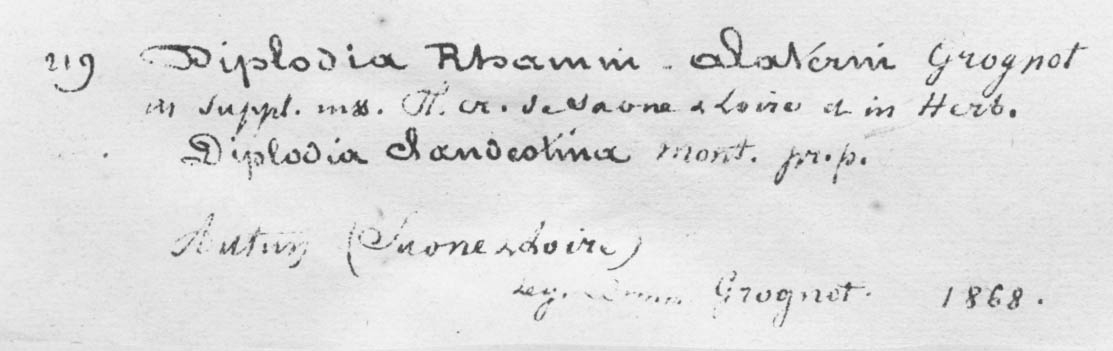 219 Diplodia Rhamni-alaterni Grognot
in suppl. mss. Fl. cr. de Saone & Loire et in Herb.
Diplodia clandestina Mont. pr. p.
Autun (Saone & Loire)
leg. Grognot. 1868.